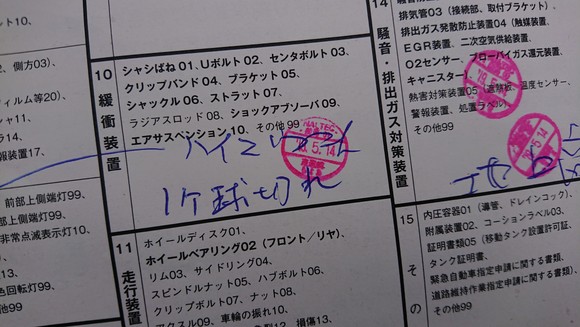 、側方03)、
ィルム等20)、
報装置17、
前部上側端灯99、
上側端灯99、
非常点滅表示灯10、
色回転灯99、
10
緩衝装置
シャシばね01、Uボルト02、センタボルト03、
クリップバンド04、ブラケット05、
シャックル06、ストラット07、
ラジアスロッド08、ショックアブソーバ09、
エアサスペンション10、その他99
1ケ球切れ
11
走行装置
ホイールディスク01、
ホイールベアリング02(フロント/リヤ)、
リム03、サイドリング04、
スピンドルナット05、ハブボルト06、
クリップボルト07、ナット08、
アクスル09、車輪の振れ10、
損傷13、
14
騒音・排出ガス対策装置
排気管03(接続部、取付ブラケット)、
排出ガス発散防止装置04(触媒装置、
EGR装置、二次空気供給装置、
O2センサー、ブローバイガス還元装置、
キャニスター)、
熱害対策装置05(遮熱板、温度センサー、
警報装置、処置ラベル)、
その他99
15
その
内圧容器01(導管、ドレインコック)、
附属装置02、コーションラベル03、
証明書類05(移動タンク設置許可証、
タンク証明書、
緊急自動車指定申請に関する書類、
道路維持作業指定申請に関する書類)、
その他99